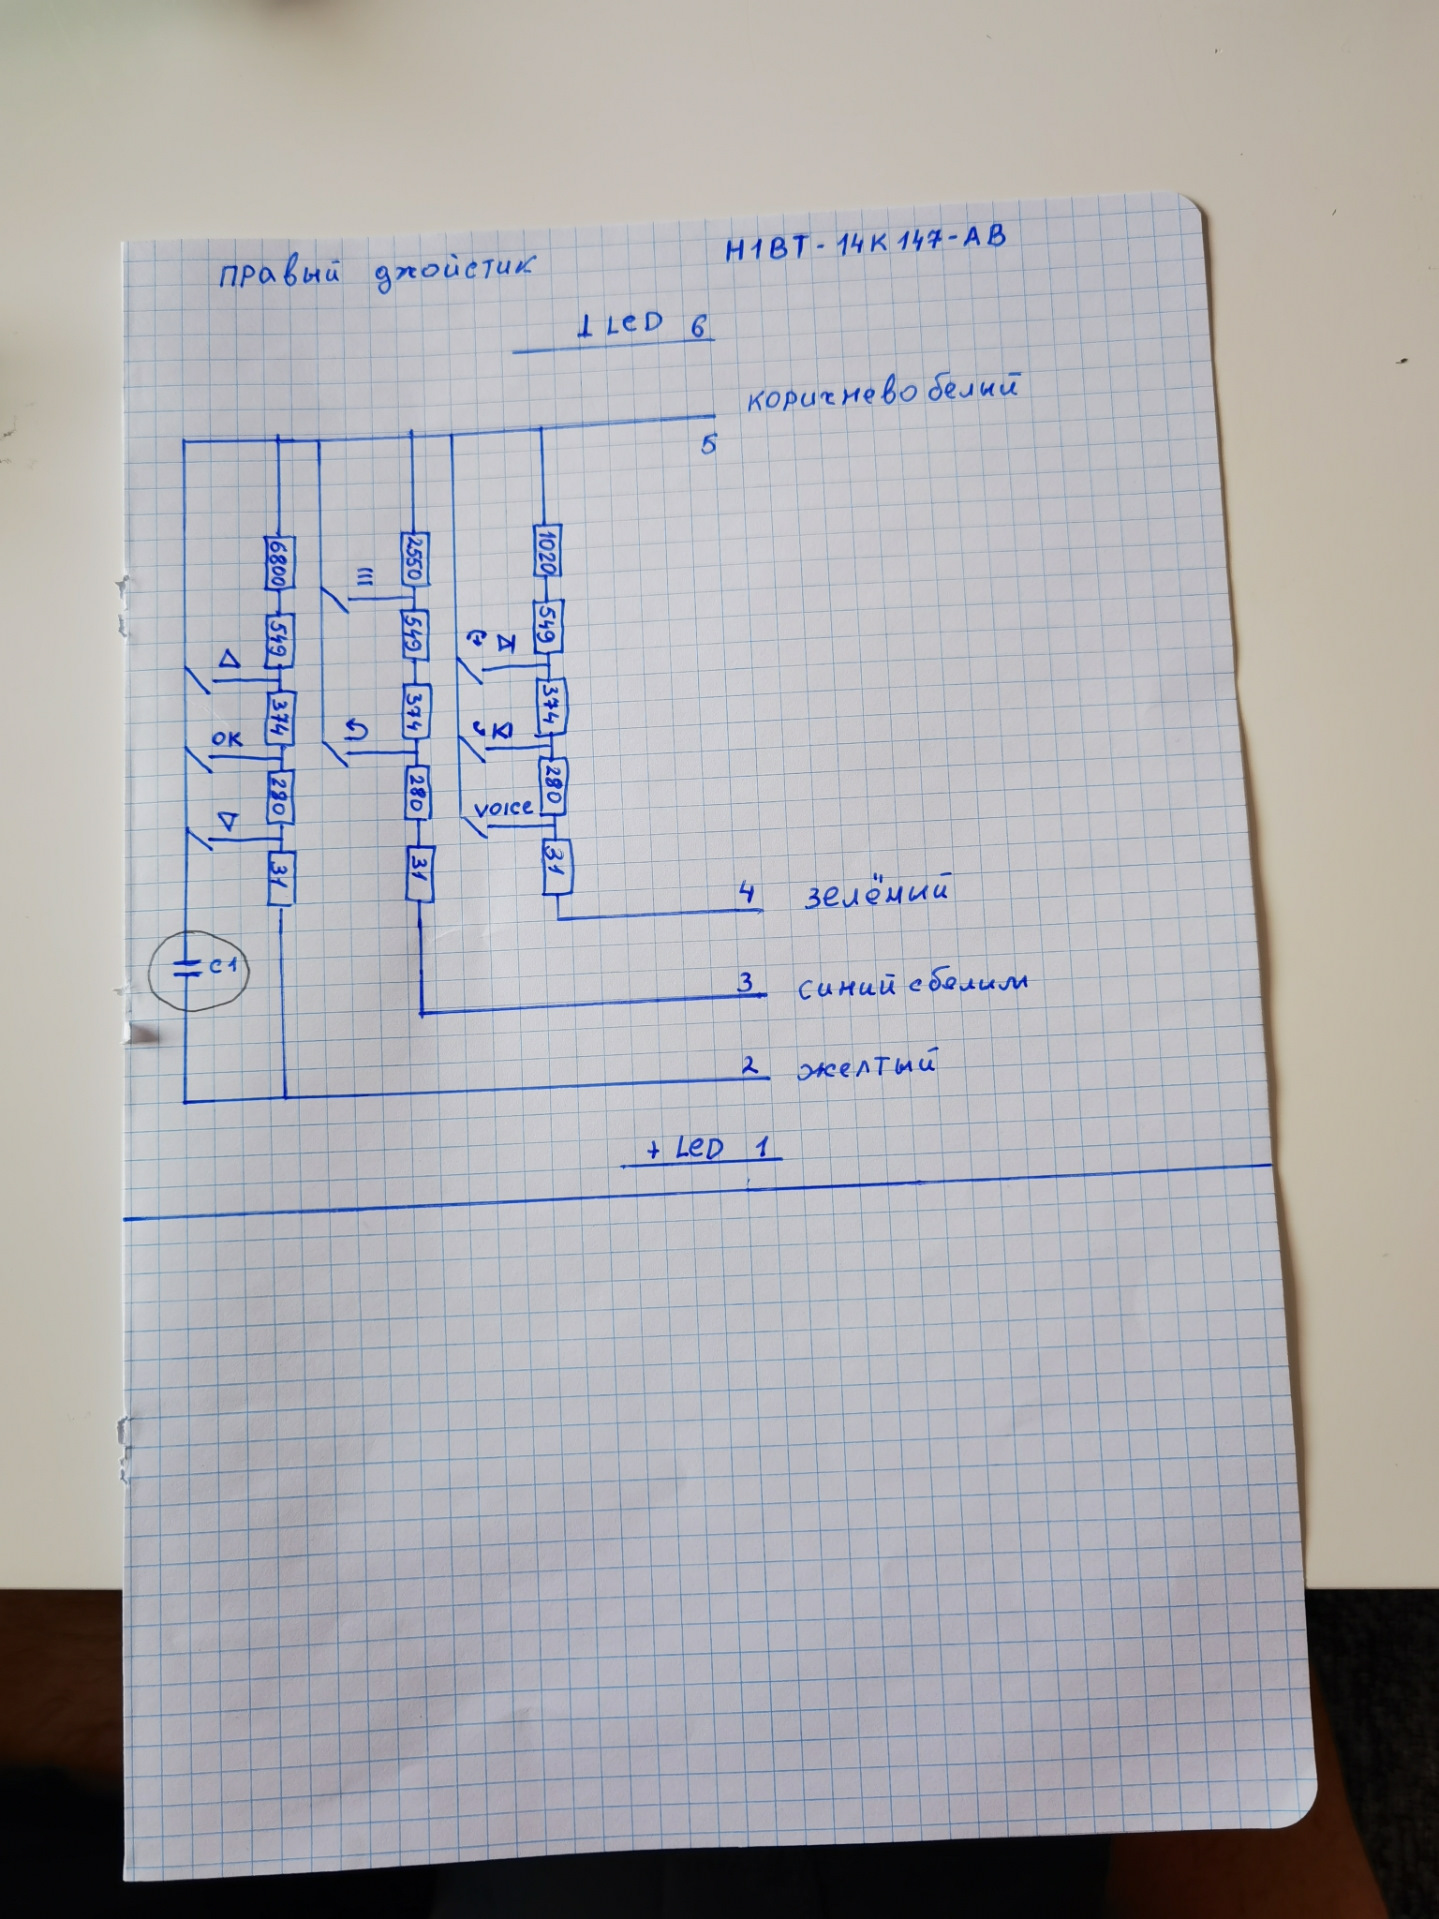 правый джойстик
H1BT-14K147-AB
⊥ LED 6
коричнево белый
5
6800
2550
1020
III
549
549
549
374
374
374
OK
280
280
280
VOICE
31
31
31
4 зелёный
C1
3 синий с белим
2 желтый
+ LED 1